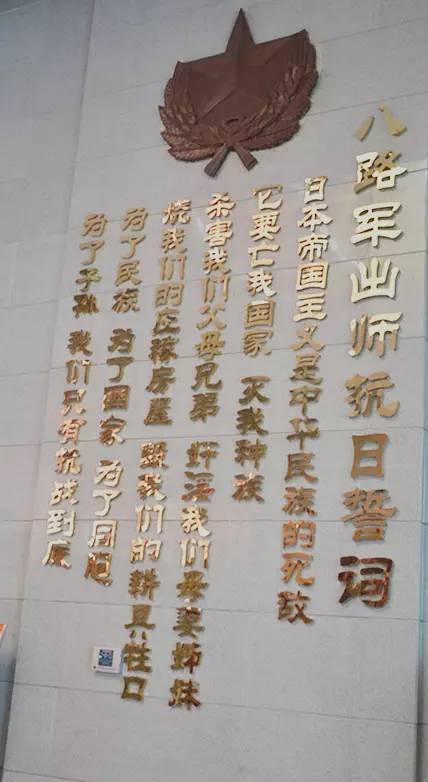 八路军出师抗日誓词
日本帝国主义是中华民族的死敌
它要亡我国家 灭我种族
杀害我们父母兄弟 奸淫我们母妻姊妹
烧我们的庄稼房屋 毁我们的耕具、牲口
为了民族 为了国家 为了同胞
为了子孙 我们只有抗战到底